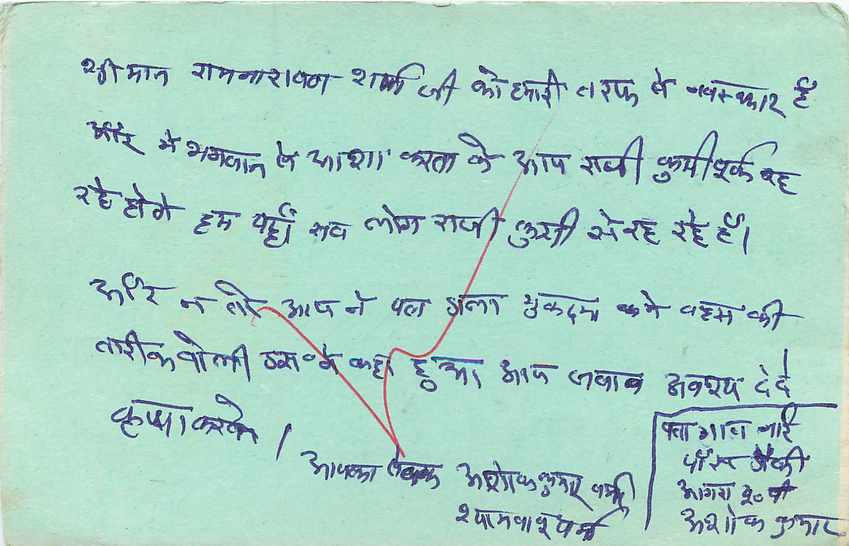 श्रीमान रामनारायण शर्मा जी को हमारी तरफ से नमस्कार है
और मे भगवान से आशा करता के आप राजी कुसी पूर्वक रह
रहे होगे हम यहाँ सब लोग राजी कुसी से रह रहे हैं।
और न तो आप ने डाला मुकदमा वहस की
तारीक वोली कहा हुआ आप जवाब अवश्य देदे
कृप्या करके।
आपका अशोक कुमार वर्मा
श्यामबाबू वर्मा
पता गाव
पोस्ट
आगरा यू० पी
अशोक कुमार